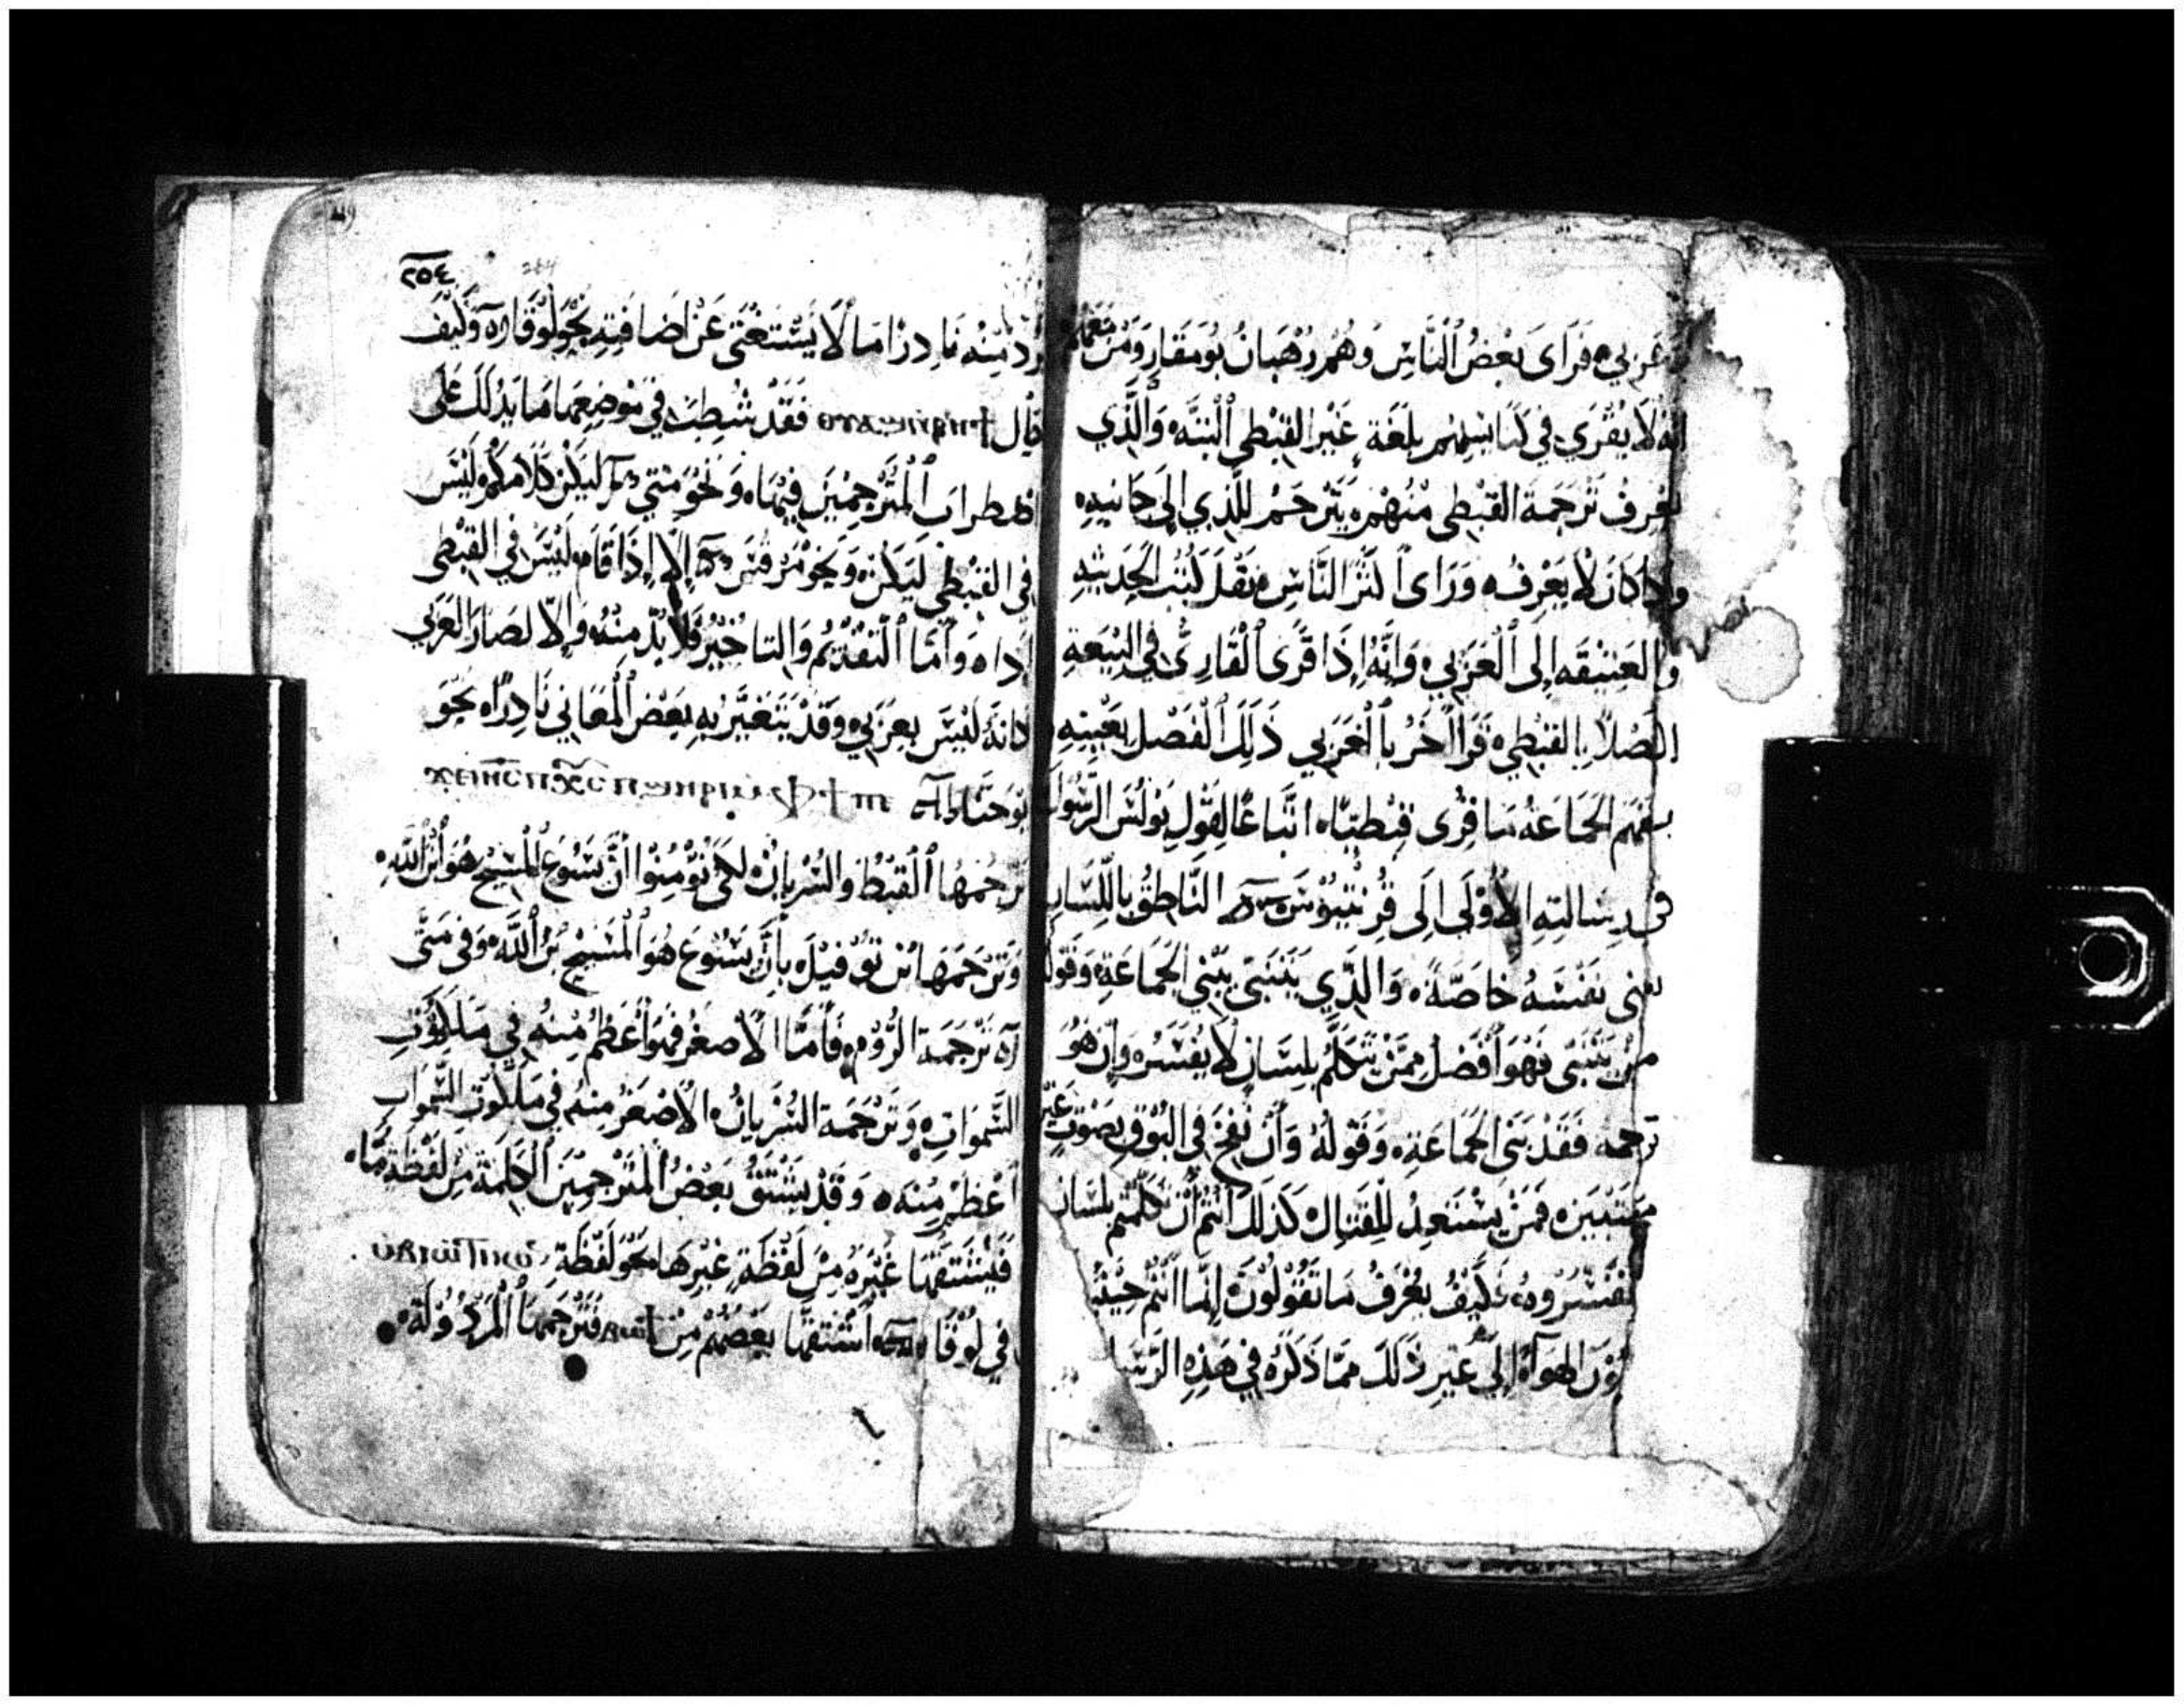 عَرَبي ه فَرَاى بَعْضُ اَلنَّاسِ وَهُمْ رُهْبَانُ بُومَقَارِ وَمَنْ مَعَهُمْ
انه لَا يُقْرَى فِي كَنَايسِهِم بِلُغَةٍ غَيْرِ القِبْطِي اَلْبَتَّه ه وَالَّذِي
يَعْرِفُ تَرْجَمَة القِبْطِي مِنْهُمْ يُتَرْجِمْ لِلَّذِي اِلَى جَانِبِهِ
وَاِذَا كَانَ لَا يَعْرِفُ ه وَرَاى اَكْثَرُ النَّاسِ نَقْلَ كُتُبِ الحَدِيثَهِ
وَالعَتِيْقَه اِلَى اَلْعَرَبِي ه وَاِنَّهُ اِذَا قَرَى اَلْقَارِي فِي البِيْعَةِ
الفَصْلَ بالقِبْطِي ه قَرَا آخَرُ باَلْعَرَبِي ذَلِكَ اَلْفَصْل بِعَيْنِهِ
يفهم الجَمَاعَهُ مَا قُرِى قِبْطِيًّا ه اتّبَاعًا لِقَوْلِ بَوْلُسَ الرَّسُوْلَ
فِى رِسَالَتِهِ الاُوْلَى اِلَى قُرِنْتِيُوْسَ النَّاطِقُ باللِّسَانِ
يبني نَفْسَهُ خَاصَّةً ه وَالَّذِي يَتَنَبَّى يَبْنِي الجَمَاعَةِ وَقَوْلُهُ
مَنْ يَتَنَبَّى فَهُوَ اَفْضَلُ مِمَّنْ يَتَكَلَّمُ بلِسَانٍ لَا يُفَسِّرُه وَاِن هُوَ
ترجمه فَقَدْ بَنَى الجَمَاعَةِ ه وَقَوْلُهُ وَاَنْ نُفِخَ فِي البُوْقِ بِصَوْتٍ غَيْرِ
مُسْتَبِيْنٍ ه فَمَنْ يَسْتَعِدُ لِلْقِتَالِ ه كَذَلِكَ اَنْتُمْ اُنْ تَكَلَّمْتُمْ بلسَان
تفَسِّرُوهُ ه فَكَيْفَ يُعْرَفُ مَا تَقُوْلُوْنَ ه اِنَّمَا اَنْتُمْ حِيْنَئِذٍ
الهَوَآء اِلَى غَيْرِ ذَلَكَ مِمَّا ذَكَرَه فِي هَذِهِ الرِّسَا
٢٥٤
264
يَرِدُ مِنْهُ نَادِرًا مَا لَا يَسْتَغْنَى عَنْ اِضَافَتِهِ نَحْوَ لُوْقَا ه وَكَيْفَ
قَالَ فَقَدْ شُطِبَتْ فِي مَوْضِعِهَا مَا يَدُلُّكَ عَلَى
اضْطِرَابِ اَلْمُتَرْجِمِيْنَ فِيْهَا ه وَنَحْوَ مَتَّى لِيَكُنْ كَلَامَكُمْ ه لَيْسَ
فِى القِبْطِي لِيَكُنْ ه وَنَحْوَ مَرْقُسَ اِلَّا اِذَا قَامَ ه لَيْسَ فِي القِبْطِي
اِذَا ه وَاَمَّا اَلْتَقْدِيْمُ وَالتَاخِيْرُ فَلَا بُدَّ مِنْهُ وَاِلَّا لَصَارَ العَرَبي
كانهُ لَيْسَ بِعَرَبِي ه وَقَدْ يَتَغَيَّرُ بِهِ بَعْضُ اَلْمَعَانِي نَادِرًا ه نَحْوَ
يُوْحَنَّا
تَرْجَمَهَا اَلْقِبْطُ وَالسُرْيَانُ ه لِكَي تُؤْمِنُوْا اَنَّ يَسُوْعَ اَلْمَسِيْحُ هُوَ اُبْنُ اَللهِ ه
وَتَرْجَمَهَا بْن تَوُفِيْلَ ه بِاَنَّ يَسُوْعَ هُوَ اَلْمَسِيْحُ بْنُ اَللَّه ه وَفِى مَتَّى
تَرْجَمَة الرُّوْمِ ه فَاَمَّا الاَصْغَرُ فَهُوَ اَعْظَمُ مِنْهُ فِي مَلَكُوْتِ
السَّمَوَاتِ ه وَتَرْجَمَة السُّرْيَانُ ه الاَصْغَرُ مِنهُ فِي مَلَكُوْتِ السَّمَوَاتِ
اَعْظَمُ مِنْهُ ه وَقَدْ يَشْتَقُّ بَعْضُ اَلْمُتَرْجِمِيْنَ اَلْكَلِمَة مِنْ لَفْظَةٍ مَّا ه
فَيَشْتَقُهَا غَيْرُهُ مِنْ لَفْظَةِ غَيْرِهَا نَحْوَ لَفْظَةِ
فِي لُوْقَا اَشْتَقَهَا بَعْضُهُمْ مِنْ فَتَرْجَمَهَا اَلْمَرْذُوْلَة ه